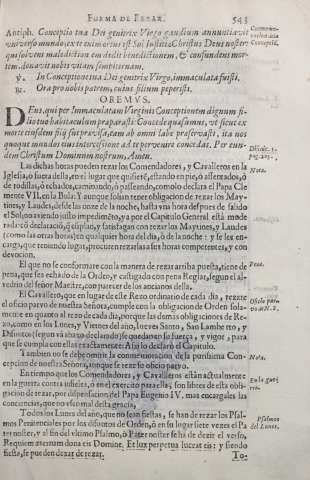 FORMA DE REZAR. 543
Antiph. Conceptio tua Dei genitrix Virgo gaudium annunciavit
universo mundo, ex te enim ortus est Sol Iustitiæ Christus Deus noster
qui solvens maledictionem dedit benedictionem, & confundens mor-
tem, donavit nobis vitam sempiternam.
V. In Conceptione tua Dei genitrix Virgo, immaculata fuisti.
R. Ora pro nobis patrem, cuius filium peperisti.
OREMVS.
DEus, qui per Immaculatam Virginis Conceptionem dignum fi-
lio tuo habitaculum præparasti: Concede quæsumus, ut sicut ex
morte eiusdem filij sui prævisa, eam ab omni labe præservasti, ita nos
quoque mundos eius intercessione ad te pervenire concedas. Per eun-
dem Christum Dominum nostrum, Amen.
Las dichas horas pueden rezar los Comendadores, y Cavalleros en la
Iglesia, ò fuera della, en el lugar que quisierẽ, estando en pie, ò assentados, ò
de rodillas, ò echados, caminando, ò passeando, como lo declara el Papa Cle
mente VII, en la Bula: Y aunque solian tener obligacion de rezar los May-
tines, y Laudes, desde las onze de la noche, hasta vna hora despues de salido
el Sol, no aviendo justo impedimẽto, ya por el Capitulo General està mode
rada esta declaració, q̃ cumplan, y satisfagan con rezar los Maytines, y Laudes
(como las otras horas) en qualquier hora del dia, ò de la noche: y se les en-
carga, que teniendo lugar, procuren rezarlas a sus horas competentes, y con
devocion.
El que no se conformare con la manera de rezar arriba puesta, tiene de
pena, que sea echado de la Orden, y castigado con pena Reglar, segun el al-
vedrio del señor Maestre, con parecer de los ancianos della.
El Cavallero, que en lugar de el Rezo ordinario de cada dia, rezare
el oficio parvo de nuestra Señora, cumple con la obligacion de Orden sola-
mente en quanto al rezo de cada dia, porque las demàs obligaciones de Re-
zo, como en los Lunes, y Viernes del año, Jueves Santo, San Lamberto, y
Difuntos (segun và abaxo declarado) se quedan en su fuerça, y vigor, para
que se cumpla con ellas exactamente: Assi lo declarò el Capitulo.
Tambien no se debe omitir la commemoracion de la purissima Con-
cepcion de nuestra Señora, aunque se reze su oficio parvo.
En tiempo que los Comendadores, y Cavalleros estàn actualmente
en la guerra contra infieles, ò en el exercito para ella, son libres de esta obli-
gacion de rezar, por dispensacion del Papa Eugenio IV. mas encargales las
conciencias, que no vsen mal desta gracia.
Todos los Lunes del año, que no sean fiestas, se han de rezar los Psal-
mos Penitenciales por los difuntos de Orden, ò en su lugar siete vezes el Pa
ter noster, y al fin del vltimo Psalmo, ò Pater noster se ha de dezir el verso,
Requiem æternam dona eis Domine. Et lux perpetua luceat eis: y siendo
fiesta, se pueden dexar de rezar.
To-
Nota.
Pena.
Nota.
Psalmos
del Lunes.